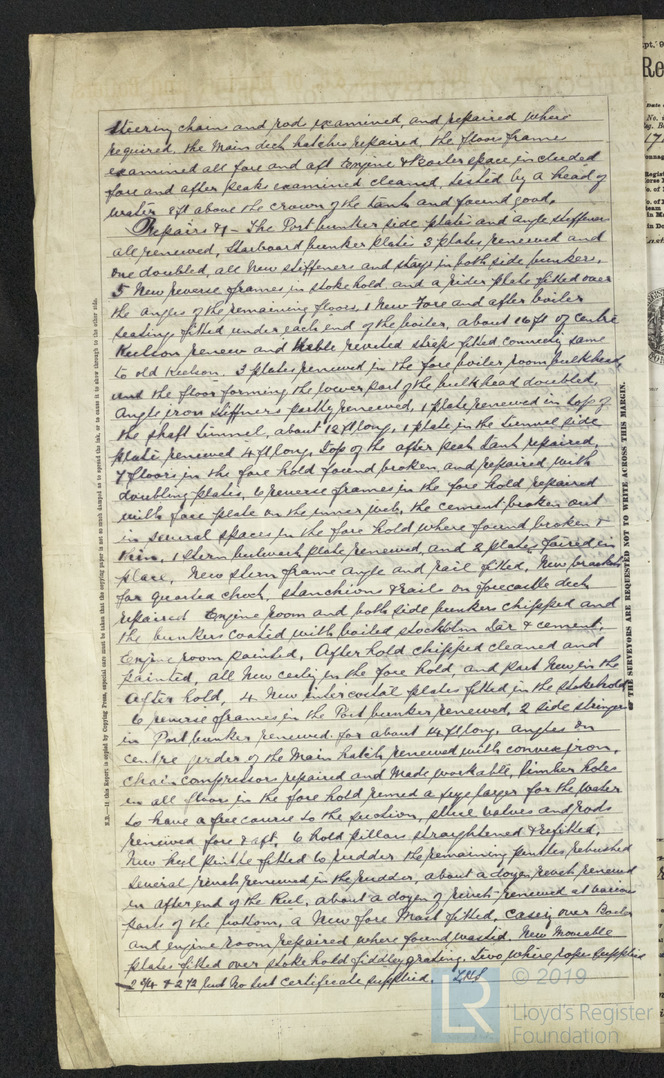 steering chains and rods examined, and repaired where
required. the Main deck hatches repaired. the floors frames
examined all fore and aft Engine & Boiler space included
fore and after peaks examined cleaned. tested by a head of
water 8ft above the crown of the tanks and found good.
Repairs The Port bunker side plates and angle stiffeners
all renewed, Starboard bunker plates 3 plates renewed and
one doubled, all New stiffeners and stays in both side bunkers,
5 New reverse frames in stokehold, and a rider plate fitted over
the angles of the remaining floors, 1 New Fore and after boiler
seating fitted under each end of the boiler, about 16ft of centre
Keelson renew and riveted straps fitted same
to old Keelson. 3 plates renewed in the fore boiler room bulkhead
and the floor forming the lower part of the bulkhead doubled,
Angle iron stiffeners partly renewed, 1 plate renewed in top of
the shaft tunnel, about 12ft long, 1 plate in the tunnel side
plate renewed 4ft long, Top of the after peak tank repaired,
7 floors in the fore hold found broken, and repaired with
doubling plates, 6 reverse frames in the fore hold repaired
with face plate on the inner web, the cement broken out
in several spaces in the fore hold where found broken &
thin, 1 Stern bulwark plate renewed, and 2 plates faired in
place, New stern frame angle and rail fitted, New brackets
for quarter chock, stanchions & rails on forecastle deck
repaired Engine room and both side bunkers chipped and
the bunkers coated with boiled stockholm tar & cement,
Engine room painted, After hold chipped cleaned and
painted, all New ceiling in the fore hold, and part New in the
After hold, 4 New intercostal plates fitted in the stokehold
6 reverse frames in the Port bunker renewed, 2 side stringer
in Port bunker renewed for about 14ft long, angles on
centre girder of the Main hatch renewed with convex iron,
chain compressors repaired and made workable, limber holes
in all floors in the fore hold rimed a size larger for the water
to have a free course to the suction, sluice valves and rods
renewed fore & aft, 6 hold pillars straightened & refitted,
New heel pintle fitted to rudder the remaining pintles rebushed
several rivets renewed in the rudder, about a dozen rivets renewed
in after end of the Keel, about a dozen of rivets renewed at various
parts of the bottom, a New fore Mast fitted, casing over Boiler
and engine room repaired where found wasted. New Movable
plates fitted over stokehold fiddley grating. Two Wire ropes supplied
2 3/4 & 2 1/2 but no test certificate supplied.
N.B.—If this Report is copied by Copying Press, especial care must be taken that the copying paper is not so much damped as to spread the ink, or to cause it to show through to the other side.
THE SURVEYORS ARE REQUESTED NOT TO WRITE ACROSS THIS MARGIN.
LR
© 2019
Lloyd's Register
Foundation